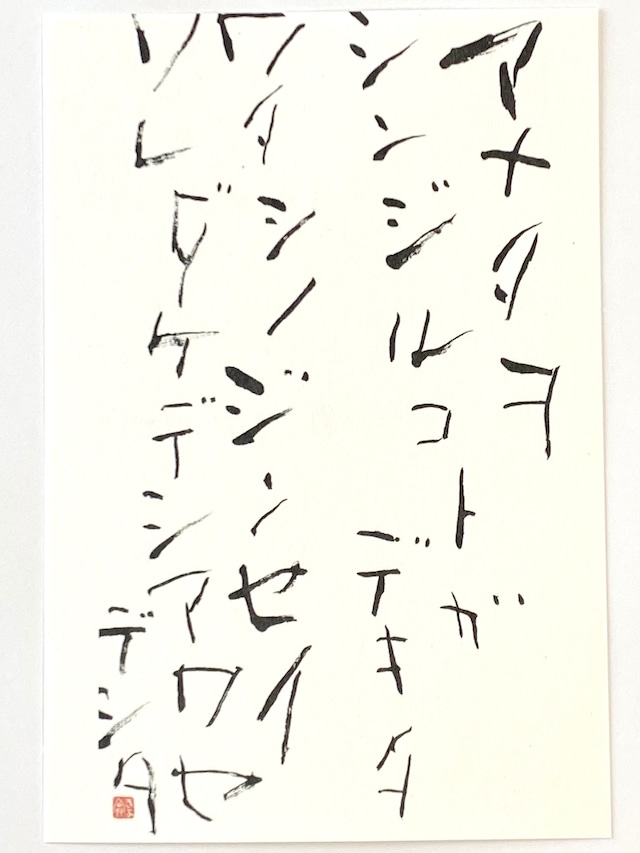 アナタヲ
シンジルコトガ
デキタ
ワタシノジンセイ
ソレダケデシアワセ
デシタ